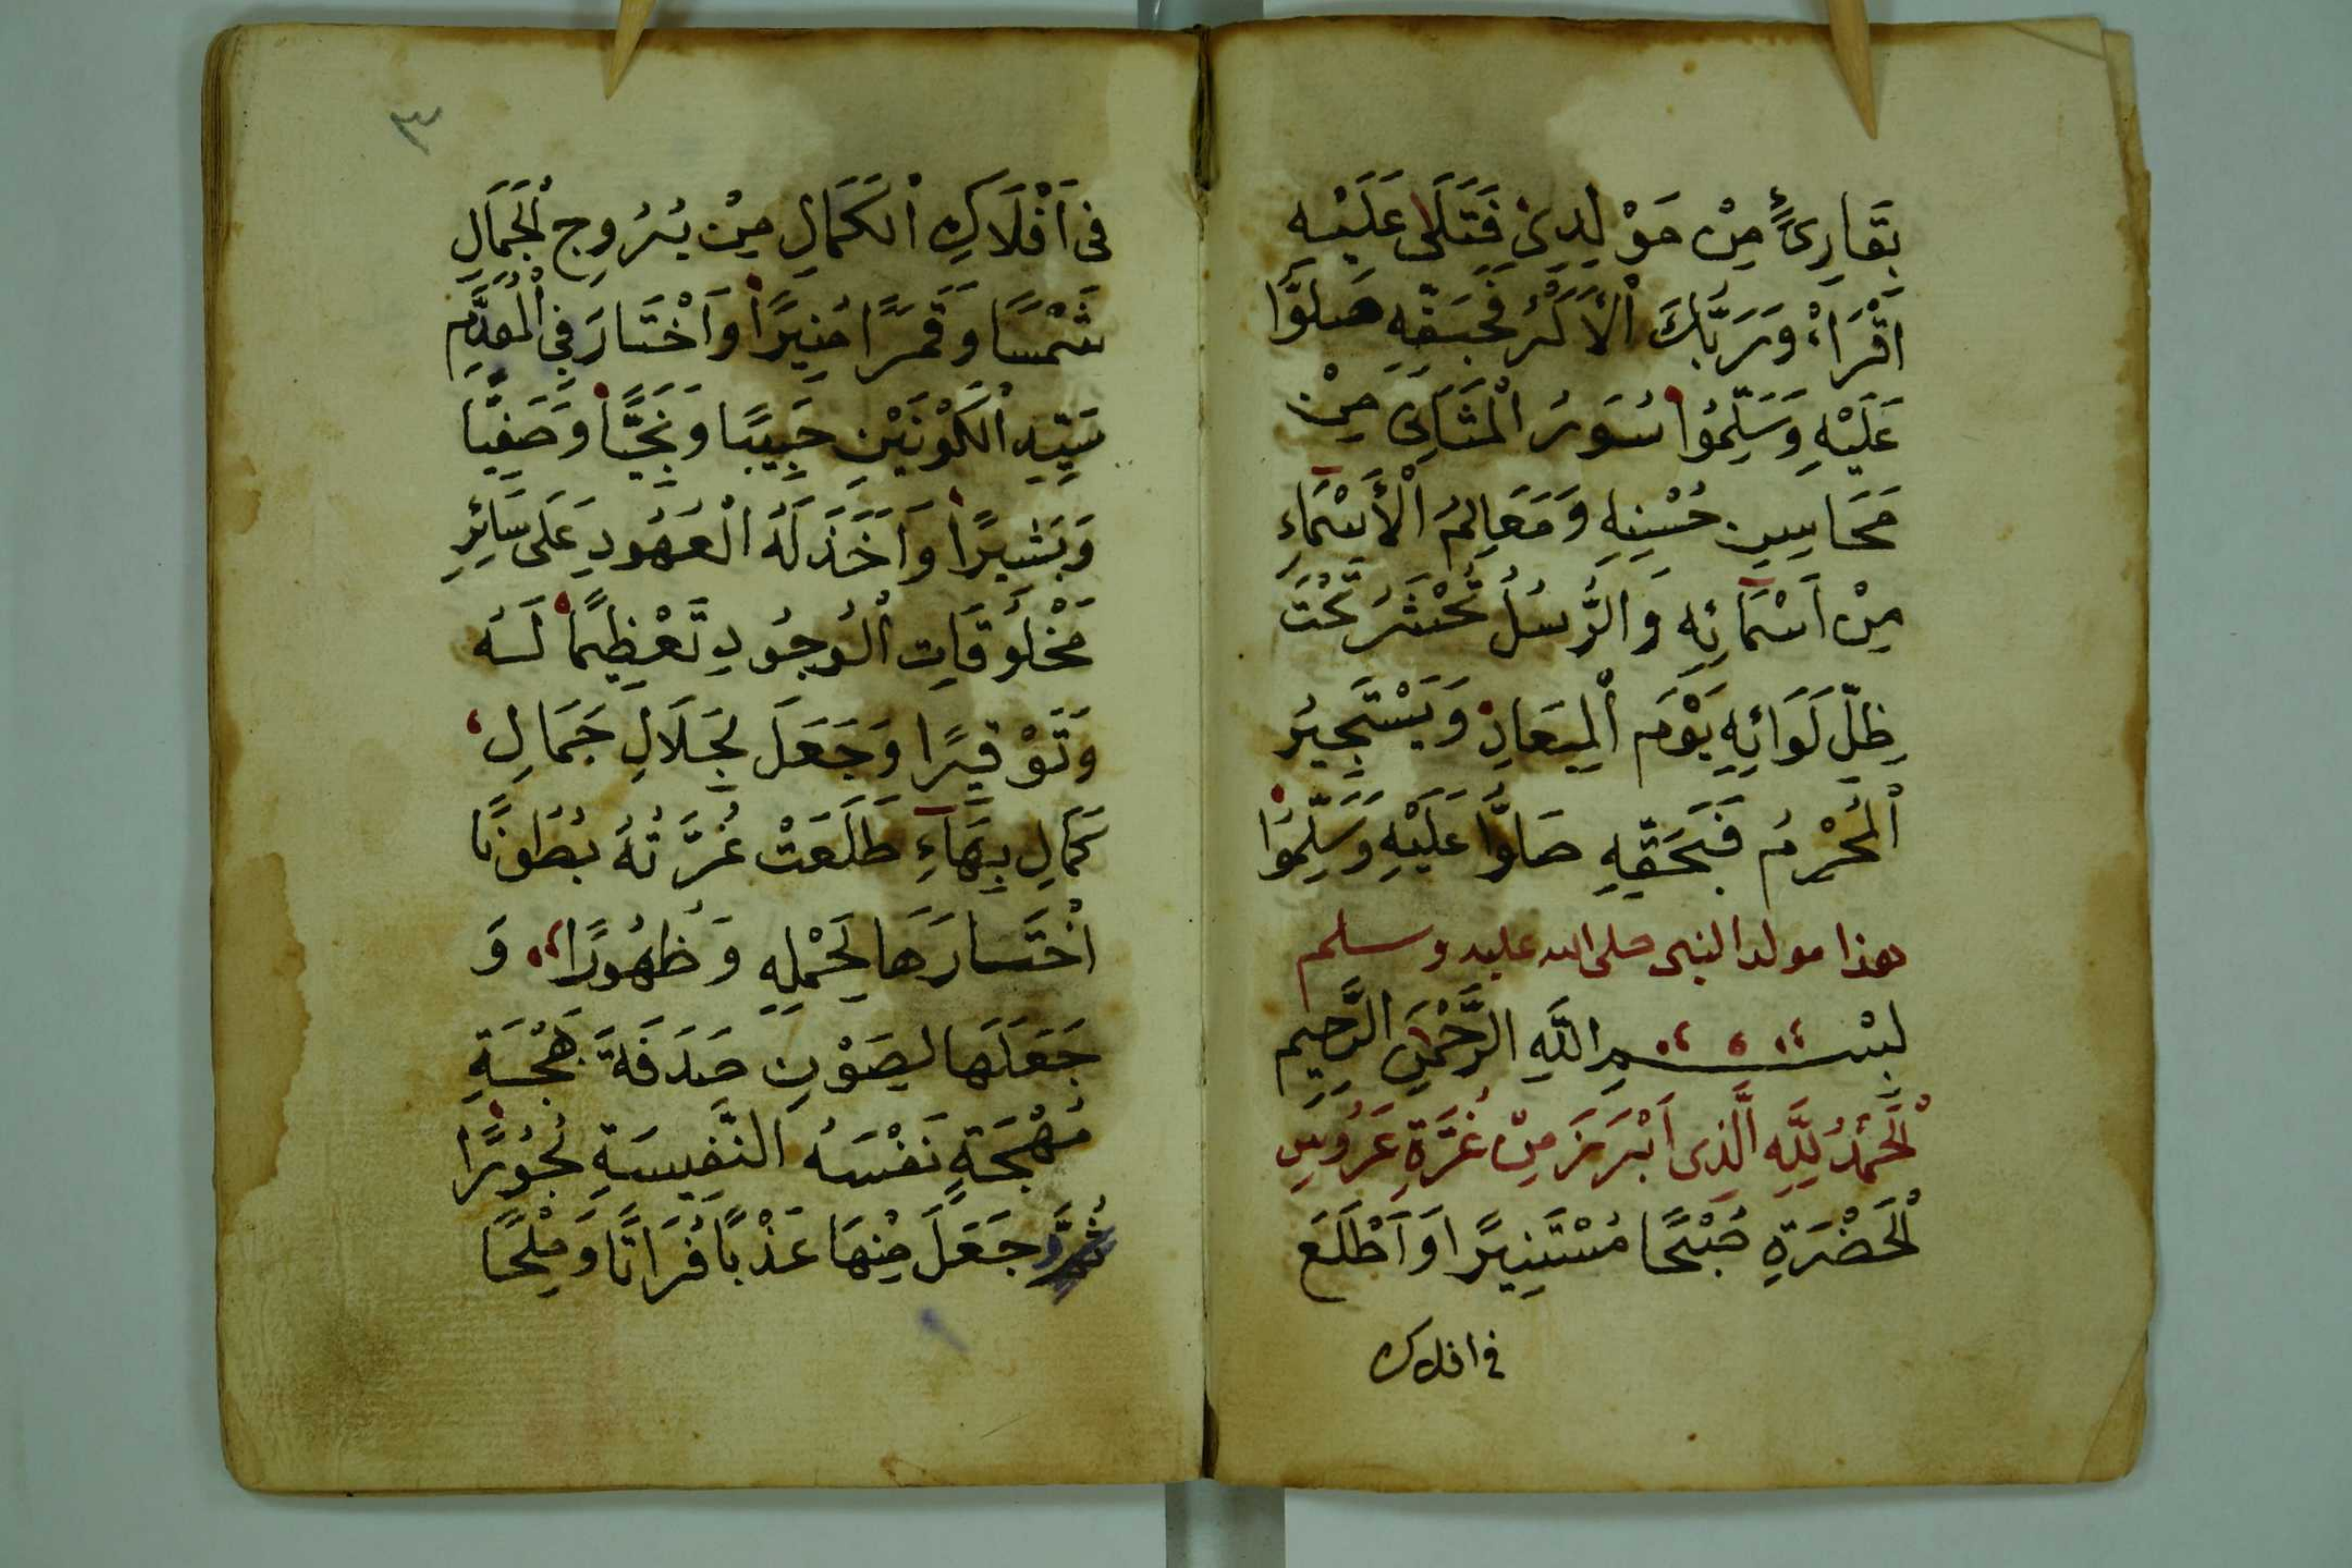 بَقَارِئٍ مِنْ مَوْلِدِىْ فَتَلَى عَلَيْهِ
اَقْرَاءْ وَرَبَّكَ الْاَكْرَمُ فَبِحَقِّهِ صَلُّوا
عَلَيْهِ وَسَلِّمُوا سُوَرُ الْمَثَانِى مِنْ
مَحَاسِنِ حُسْنِهِ وَمَعَالِمُ الْأَسْمَاءِ
مِنْ اَسْمَائِهِ وَالرُّسُلُ تُحْشَرُ تَحْتَ
ظِلِّ لَوَائِهِ يَوْمَ الْمِيعَادِ وَيَسْتَجِيرُ
الْمُحْرِمُ فَبِحَقِّهِ صَلُّوا عَلَيْهِ وَسَلِّمُوا
هذا مولد النبى صلى الله عليه وسلم
بِسْمِ اللَّهِ الرَّحْمَنِ الرَّحِيمِ
اْلحَمْدُ لِلَّهِ الَّذِى اَبْرَزَ مِنْ غُرَّةِ عَرُوسِ
اْلحَضْرَةِ صُبْحًا مُسْتَنِيرًا وَاَطْلَعَ
فى افلاك
٣
فى اَفْلَاكِ الْكَمَالِ مِنْ بُرُوجِ الْجَمَالِ
شَمْسًا وَقَمَرًا مُنِيرًا وَاَخْتَارَ فِى الْقِدَمِ
سَيِّدِ الْكَوْنَيْنِ حَبِيبًا وَنَجِيًّا وَصَفِيًّا
وَبَشِيرًا وَاَخَذَ لَهُ الْعُهُودِ عَلَى سَائِرِ
مَخْلُوقَاتِ الْوُجُودِ تَعْظِيمًا لَهُ
وَتَوْقِيرًا وَجَعَلَ لِجَلَالِ جَمَالِ
كَمَالِ بِبَهَاءِ طَلَعَتْ غُرَّتُهُ بُطُونًا
اْخْتَارَهَا لِحَمْلِهِ وَظُهُورًا وَ
جَعَلَهَا لِصَوْنِ صَدَفَةَ بَهْجَةِ
مُهْجَةٍ نَفْسَهُ النَّفِيسَةِ نُحُورًا
ثُمَّ وجَعَلَ مِنْهَا عَذْبًا فُرَاتًا وَمِلْحًا